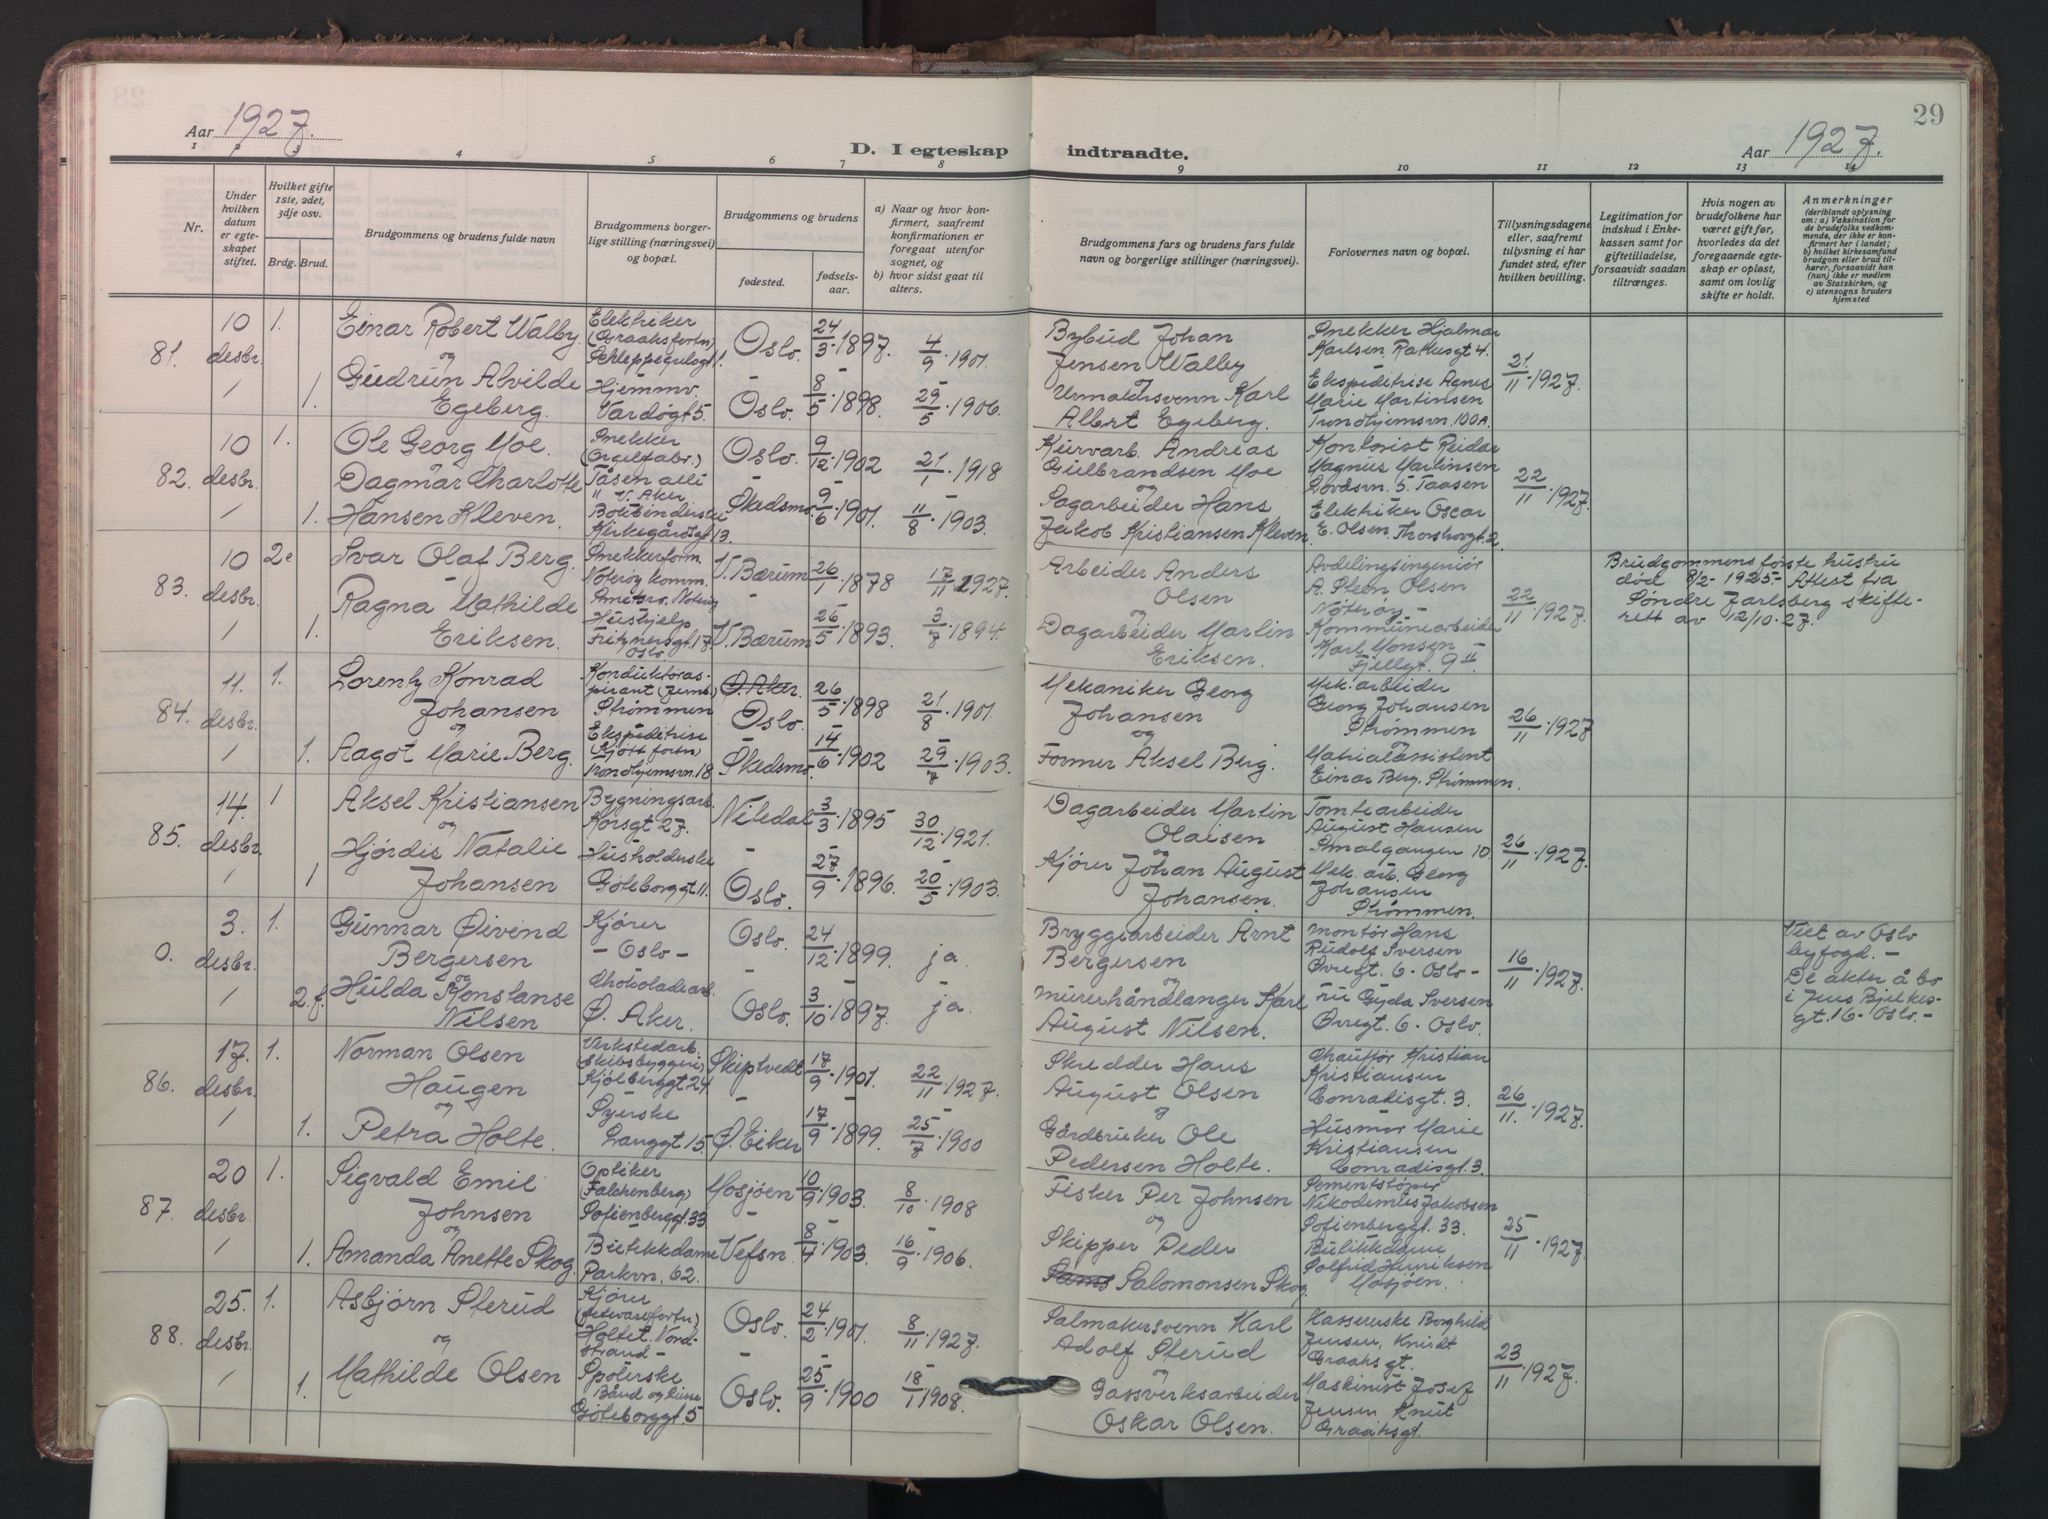 Aar 1927.
29
Aar 1927.
D. I egteskap indtraadte.
1 2 3 4 5 6 7 8 9 10 11 12 13 14
Nr.
Under hvilken datum er egteskapet stiftet.
Hvilket gifte 1ste, 2det, 3dje osv.
Brdg. Brud.
Brudgommens og brudens fulde navn
Brudgommens borgerlige stilling (næringsvei) og bopæl.
Brudgommens og brudens
fødested.
fødselsaar.
a) Naar og hvor konfirmert, saafremt konfirmationen er foregaat utenfor sognet, og
b) hvor sidst gaat til alters.
Brudgommens fars og brudens fars fulde navn og borgerlige stillinger (næringsvei).
Forlovernes navn og bopæl.
Tillysningsdagene eller, saafremt tillysning ei har fundet sted, efter hvilken bevilling.
Legitimation for indskud i Enkekassen samt for giftetilladelse, forsaavidt saadan tiltrænges.
Hvis nogen av brudefolkene har været gift før, hvorledes da det foregaaende egteskap er opløst, samt om lovlig skifte er holdt.
Anmerkninger
(deriblandt oplysning om: a) Vaksination for de brudefolks vedkommende, der ikke er konfirmert her i landet; b) hvilket kirkesamfund brudgom eller brud tilhører, forsaavidt han (hun) ikke er medlem av Statskirken, og c) utensogns bruders hjemsted
81. 10 desbr. 1. Einar Robert Walby. Elektriker Oslo. 24/3·1897. 4/9·1901.
og
1. Gudrun Alvilde Egeberg. Hjemmv. Vardøgt 5. Oslo. 8/5·1898. 29/5·1906.
Bybud Johan Jensen Walby
og
Karl Albert Egeberg.
Snekker Hjalmar Karlsen Rathusgt 4.
Ekspeditrise Agnes Marie Martinsen Trondhjemsvn. 100A.
21/11·1927.
82. 10 desbr. 1. Ole Georg Moe. Snekker (Orgelfabr.) Tåsen allé V. Aker. Oslo. 9/12·1902 21/1·1918
og
1. Dagmar Charlotte Hansen Kleven. Kirkegårdsgt 13. Skedsmo. 9/6·1901. 11/8·1903.
Andreas Gulbrandsen Moe
og
Sagarbeider Hans Jakob Kristiansen Kleven.
Kontorist Reidar Magnus Martinsen Lovdsvn. 5. Taasen
Elektriker Oscar E. Olsen, Thorshovgt. 2.
22/11·1927.
83. 10 desbr. 2e Ivar Olaf Berg. Snekkerform. V. Bærum 26/1·1878 17/11 1927.
1. Ragna Mathilde Eriksen. Hushjelp Fritznersgt 17. Oslo V. Bærum 25/5·1893. 3/7·1894.
Arbeider Anders Olsen
og
Dagarbeider Martin Eriksen.
Avdelingsingeniør A. Steen Olsen Nøterøy -
Kommunearbeider Karl Monsen Fjellgt. 9 II
22/11·1927.
Brudgommens første hustru død 8/2-1925- Attest fra Søndre Jarlsberg skifterett av 12/10-27.
84. 11. desbr. 1. Lorentz Konrad Johansen Strømmen Ø. Aker. Oslo. 26/5·1898 21/8·1901.
og
1. Aagot Marie Berg. Ekspeditrise Trondhjemsvn. 18 Skedsmo. 14/6·1902 29/7·1903.
Mekaniker Georg Johansen
og
Former Aksel Berg.
Mek. arbeider Georg Johansen Strømmen
og
Einar Berg, Strømmen.
26/11·1927
85. 14. desbr. 1 Aksel Kristiansen Bygningsarb. Korsgt 27. Nitedal 3/3·1895 30/12·1921.
og
1 Hjørdis Natalie Johansen Husholderske Gøteborggt 11. Oslo. 27/9·1896. 20/5·1903.
Dagarbeider Martin Olaisen
og
Kjører Johan August Johansen.
Tomtearbeider August Hansen Smalgangen 10.
Mek. arb. Georg Johansen Strømmen.
26/11·1927.
0. 3. desbr. 1. Gunnar Øivend Bergersen Kjører - Oslo - Oslo. 24/12·1899. ja.
og
2. f. Hulda Konstanse Nilsen Chokoladearb. Ø. Aker. Oslo. 3/10·1897. ja.
Bryggearbeider Arnt Bergersen
og
Murerhåndlanger Karl August Nilsen.
Montør Hans Rudolf Iversen Øvregt. 6 - Oslo -
Fru Gyda Iversen Øvregt. 6 - Oslo.
16/11·1927.
Viet av Oslo byfogd. -
De akter å bo i Jens Bjelkesgt. 16 - Oslo. -
86. 17. desbr. 1. Norman Olsen Haugen Verkstedarb. (Skibsbyggeri) Kjølberggt 24 Skiptvedt 17/9·1901. 22/11·1927.
og
1. Petra Holte. Syerske Langgt. 15. Ø. Eiker 17/9·1899. 25/7·1900
Skredder Hans August Olsen
og
Gårdbruker Ole Pedersen Holte.
Chauffør Kristian Kristiansen Conradisgt. 3.
Husmor Marie Kristiansen Conradisgt. 3.
26/11·1927.
87. 20 desbr. 1. Sigvald Emil Johnsen Optiker (Falchenberg) Sofienberggt. 33 Mosjøen 10/9·1903. 8/10·1908
og
1. Amanda Anette Skog. Butikkdame Parkvn. 62. Vefsn. 8/4·1903. 16/9·1906.
Fisker Per Johnsen
og
Skipper Peder Salomonsen Skog.
Sementstøper Nikodemus Jakobsen Sofienberggt. 33.
Butikkdame Solfrid Henriksen Mosjøen.
25/11·1927.
88. 25. desbr. 1. Asbjørn Sterud Kjører Holtet. Nordstrand - Oslo. 24/2·1901. 8/11·1927.
og
1. Mathilde Olsen Spolerske Gøteborggt. 5 Oslo. 25/9·1900 18/1 1908.
Salmakersvenn Karl Adolf Sterud
og
Gassverksarbeider Oskar Olsen.
Kassererske Borghild Jensen, Knudt Graahsgt.
Maskinist Josef Jensen Knut Graahsgt.
23/11·1927.